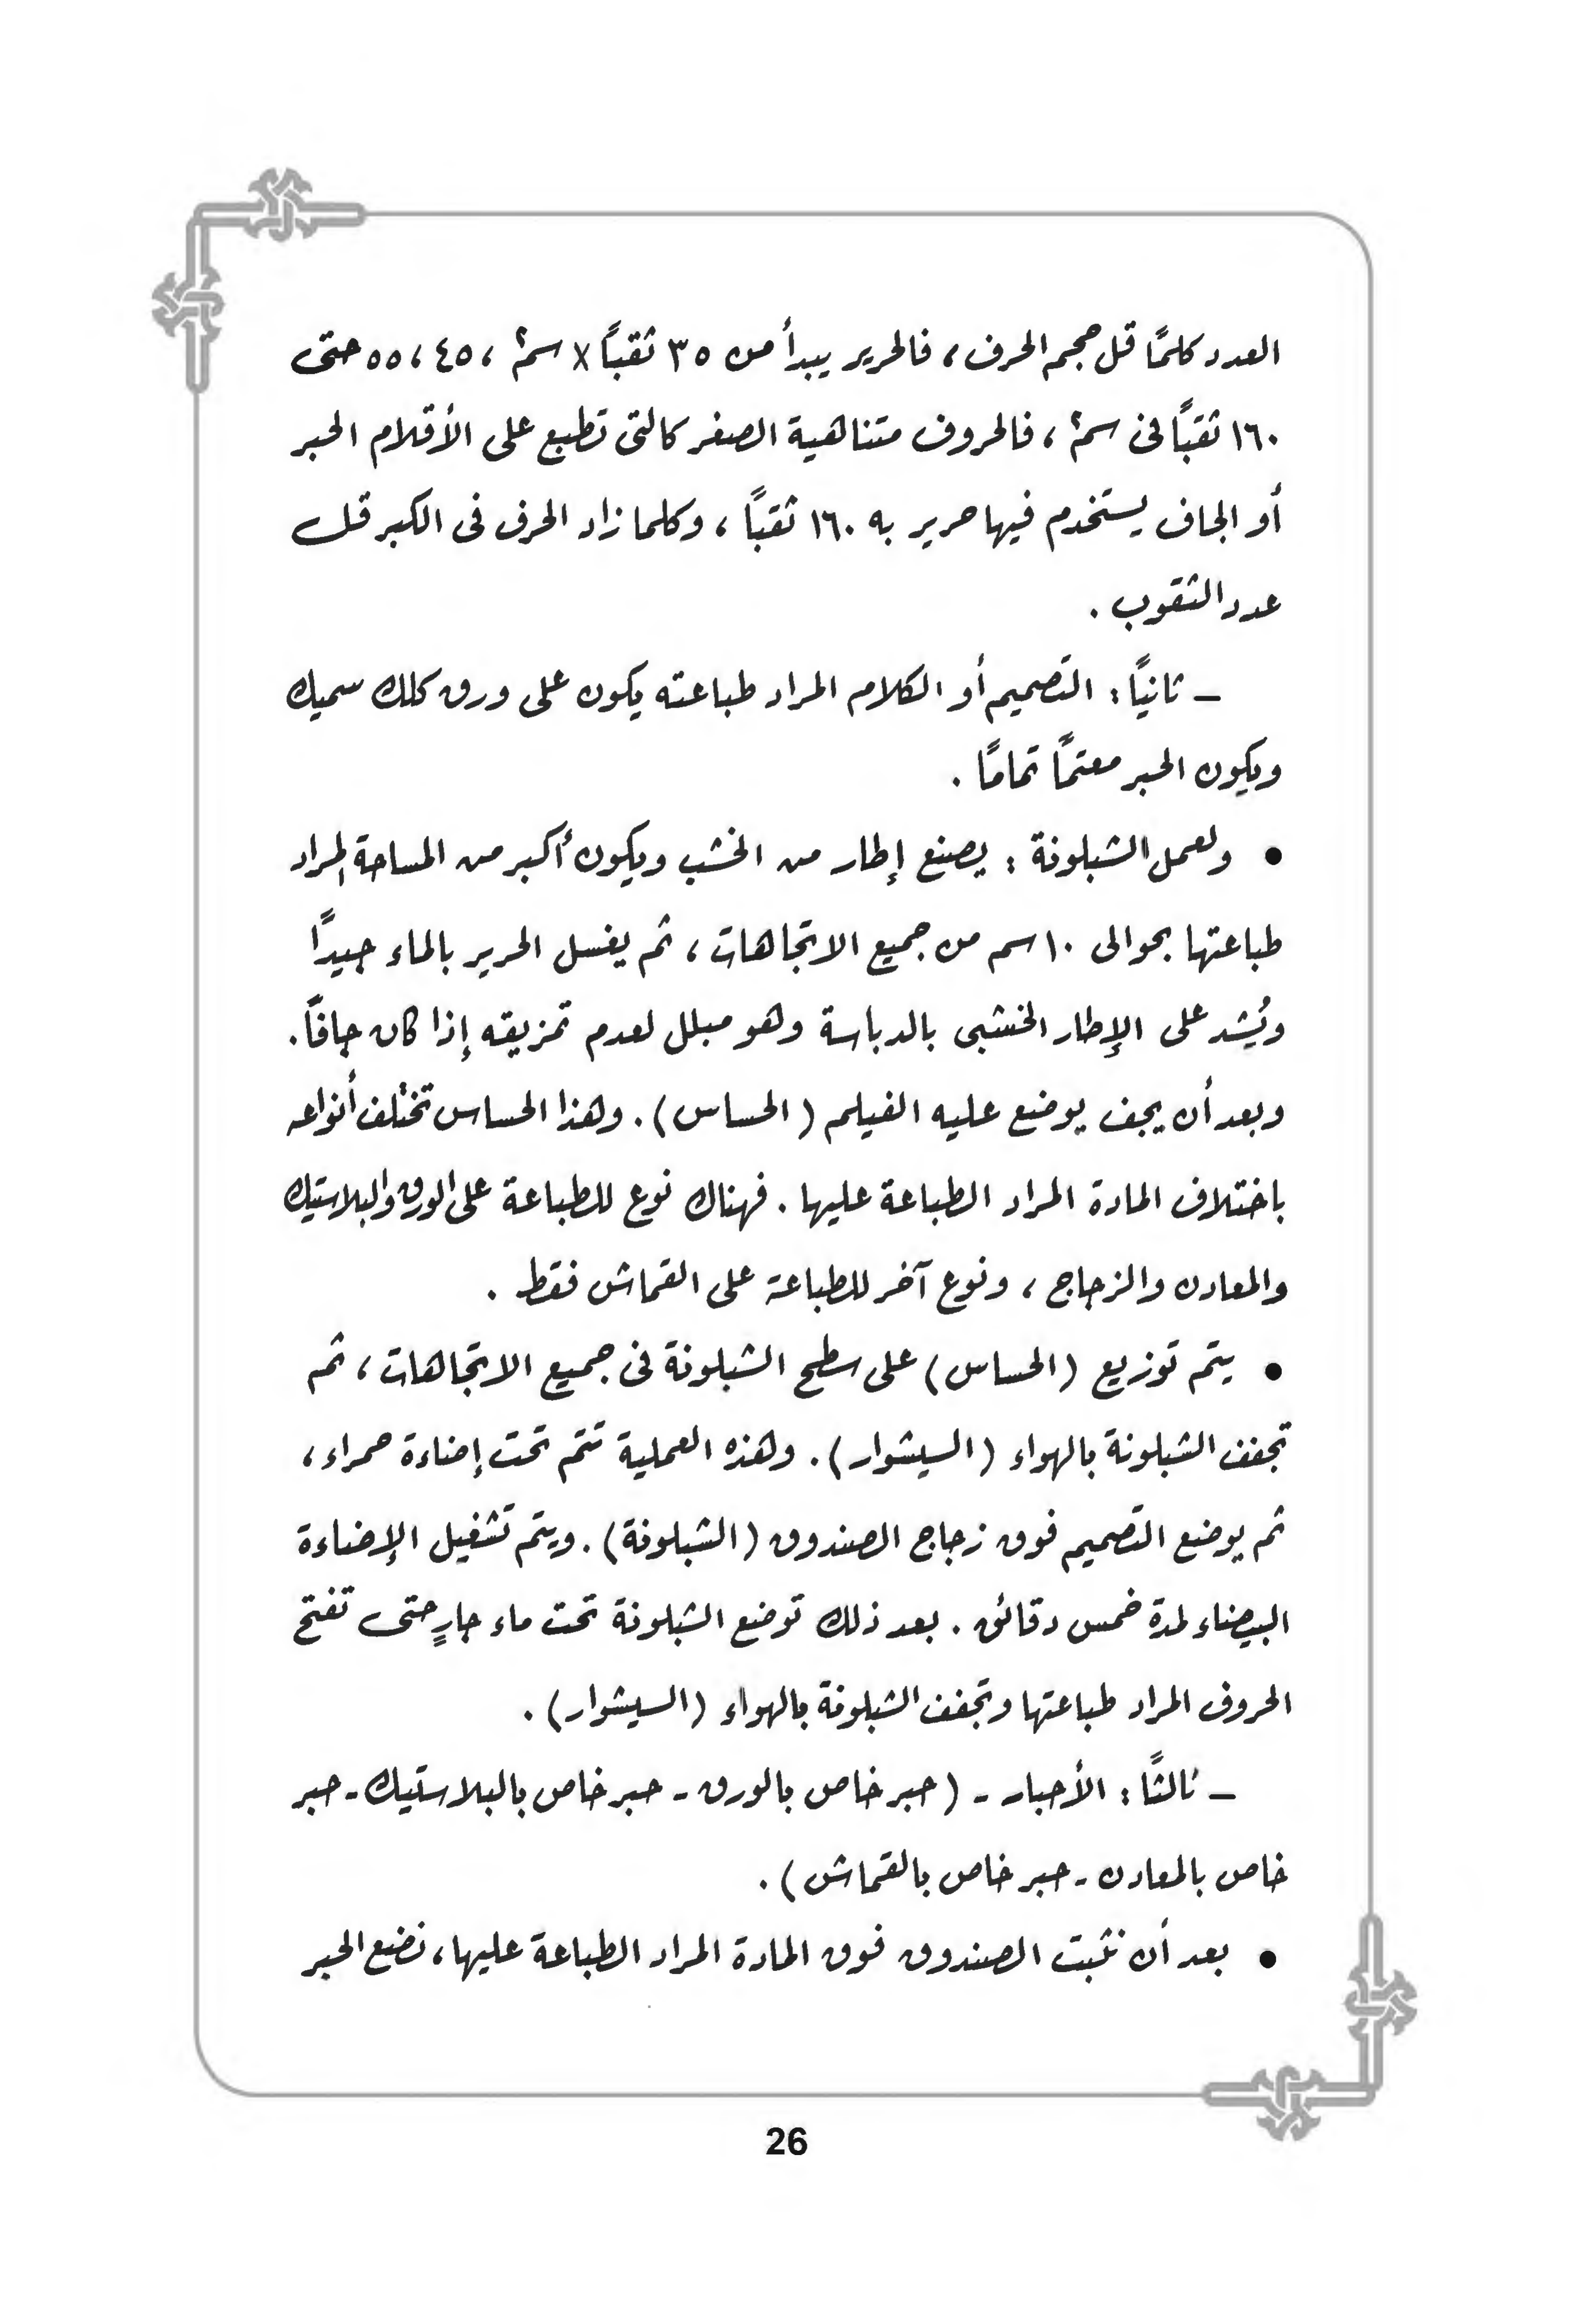 العدد كلمًا قل حجم الحرف، فالحرير يبدأ من ٣٥ ثقبًا × سم٢ ، ٤٥ ، ٥٥ حتى
١٦٠ ثقبًا فى سم٢ ، فالحروف متناهية الصغر كالتى تطبع على الأقلام الحبر
أو الجاف يستخدم فيها حرير به ١٦٠ ثقبًا ، وكلما زاد الحرف فى الكبر قل
عدد الثقوب .
– ثانيًا : التصميم أو الكلام المراد طباعته يكون على ورق كلك سميك
ويكون الحبر معتمًا تمامًا .
● ولعمل الشبلونة : يصنع إطار من الخشب ويكون أكبر من المساحة المراد
طباعتها بحوالى ١٠ سم من جميع الاتجاهات ، ثم يغسل الحرير بالماء جيدًا
ويُشد على الإطار الخشبى بالدباسة وهو مبلل لعدم تمزيقه إذا كان جافًا .
وبعد أن يجف يوضع عليه الفيلم ( الحساس ) . وهذا الحساس تختلف أنواعه
باختلاف المادة المراد الطباعة عليها . فهناك نوع للطباعة على الورق والبلاستيك
والمعادن والزجاج ، ونوع آخر للطباعة على القماش فقط .
● يتم توزيع ( الحساس ) على سطح الشبلونة فى جميع الاتجاهات ، ثم
تجفف الشبلونة بالهواء ( السيشوار ) . وهذه العملية تتم تحت إضاءة حمراء ،
ثم يوضع التصميم فوق زجاج الصندوق ( الشبلونة ) . ويتم تشغيل الإضاءة
البيضاء لمدة خمس دقائق . بعد ذلك توضع الشبلونة تحت ماء جارٍ حتى تفتح
الحروف المراد طباعتها وتجفف الشبلونة بالهواء ( السيشوار ) .
– ثالثًا : الأحبار - ( حبر خاص بالورق - حبر خاص بالبلاستيك - حبر
خاص بالمعادن - حبر خاص بالقماش ) .
● بعد أن نثبت الصندوق فوق المادة المراد الطباعة عليها ، نضع الحبر
26